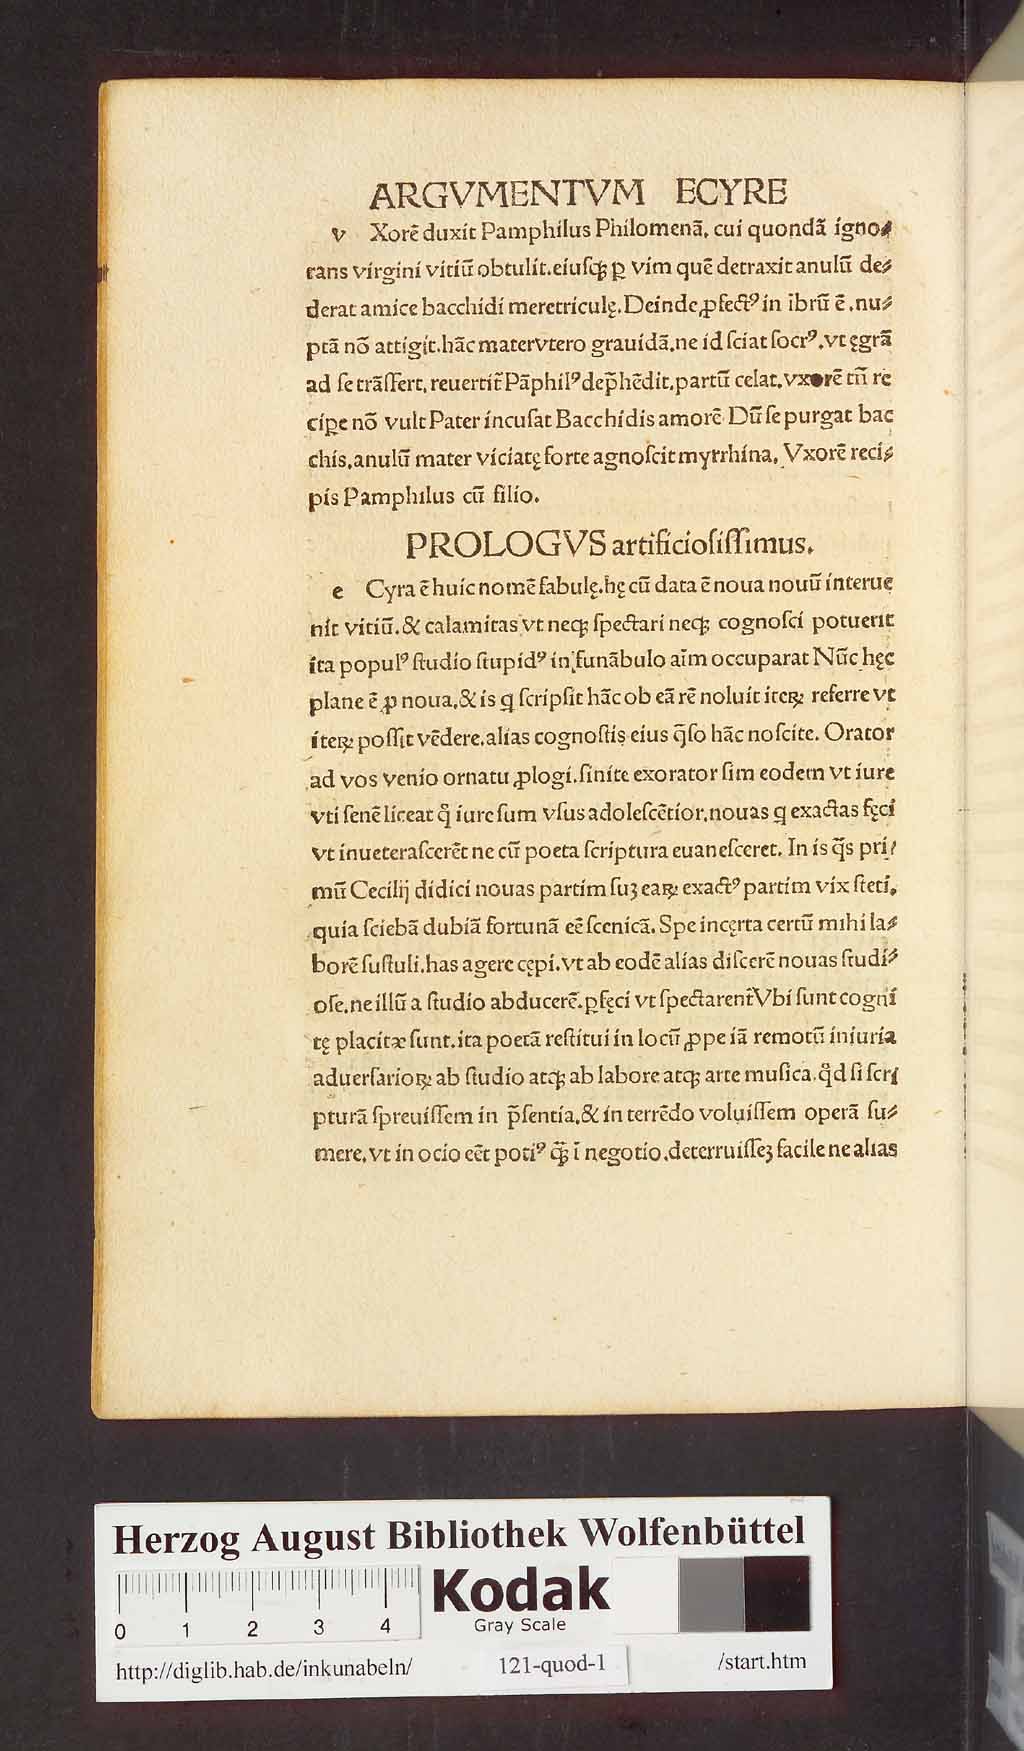 ARGVMENTVM ECYRE
v Xorē duxit Pamphilus Philomenā, cui quondā igno⸗
rans virgini vitiū obtulit.eiusꝗ ꝑ vim quē detraxit anulū de⸗
derat amice bacchidi meretriculę.Deinde ꝓfectꝰ in ibrū ē .nu⸗
ptā nō attigit.hāc mater vtero grauidā,ne id ſciat ſocrꝰ.vt ęgrā
ad ſe trāſfert, reuertit̃ Pāphilꝰ dep̄hēdit,partū celat,vxorē tn̄ re
cipe nō vult Pater incuſat Bacchidis amorē Dū ſe purgat bac
chis,anulū mater viciatę forte agnoſcit myrrhina, Vxorē reci⸗
pis Pamphilus cū filio.
PROLOGVS artificioſiſſimus.
e Cyra ē huic nomē fabulę.hę cū data ē noua nouū interue
nit vitiū.& calamitas vt neqꝫ ſpectari neqꝫ cognoſci potuerit
ita populꝰ ſtudio ſtupidꝰ in funābulo aīm occuparat Nūc hęc
plane ē ꝓ noua,& is q ſcripſit hāc ob eā rē noluit iteꝝ referre vt
iteꝝ poſſit vēdere.alias cognoſtis eius q̄ſo hāc noſcite. Orator
ad vos venio ornatu ꝓlogi.ſinite exorator ſim eodem vt iure
vti ſenē liceat q̊ iure ſum vſus adoleſcētior.nouas q exactas fęci
vt inueteraſcerēt ne cū poeta ſcriptura euaneſceret. In is q̄s pri⸗
mū Cecilij didici nouas partim ſuꝫ eaꝝ exactꝰ partim vix ſteti,
quia ſciebā dubiā fortunā eē ſcenicā. Spe incęrta certū mihi la⸗
borē ſuſtuli.has agere cępi.vt ab eodē alias diſcerē nouas ſtudi⸗
oſe,ne illū a ſtudio abducerē.ꝑfęci vt ſpectarent̃ Vbi ſunt cogni
tę placitæ ſunt.ita poetā reſtitui in locū ꝓpe iā remotū iniuria
aduerſarioꝝ ab ſtudio atqꝫ ab labore atqꝫ arte muſica.qd̊ ſi ſcri
pturā ſpreuiſſem in p̄ſentia,& in terrēdo voluiſſem operā ſu⸗
mere,vt in ocio eēt potiꝰ q̄ꝫ ī negotio.deterruiſſeꝫ facile ne alias
Herzog August Bibliothek Wolfenbüttel
Kodak
Gray Scale
0 1 2 3 4
http://diglib.hab.de/inkunabeln/ 121-quod-1 /start.htm